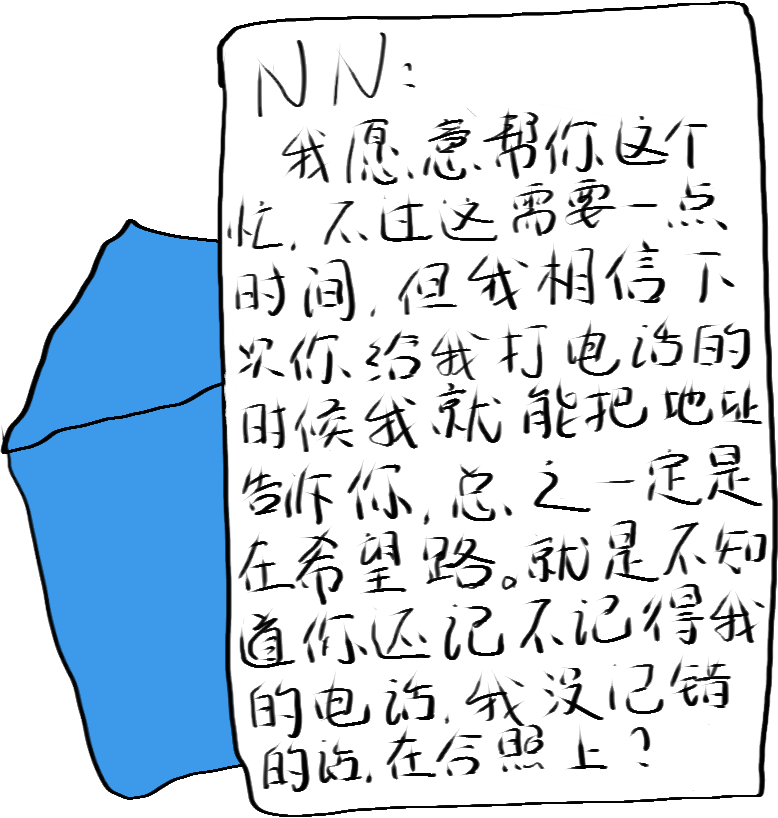 NN:
我愿意帮你这个
忙,不过这需要一点
时间,但我相信下
次你给我打电话的
时候我就能把地址
告诉你,总之一定是
在希望路。就是不知
道你还记不记得我
的电话,我没记错
的话,在合照上?